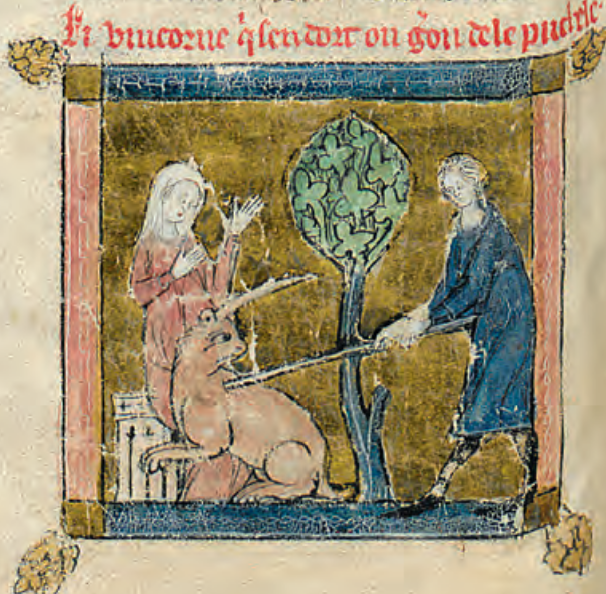 Li vnicorne q̃ sen dort ou gõn dele pucele